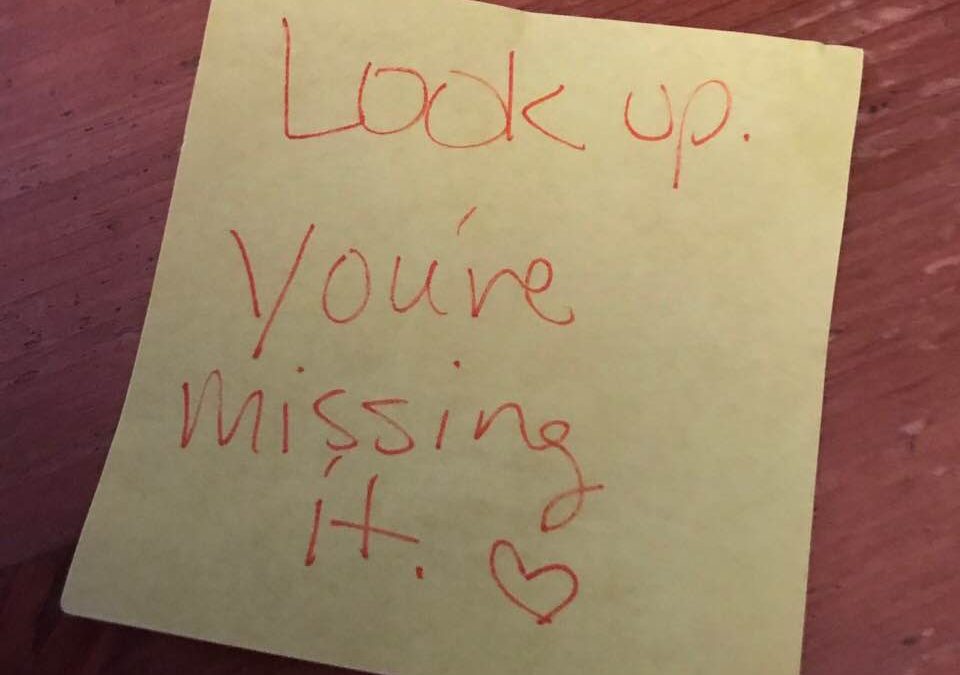 Look up.
You're
missing
it. ♡